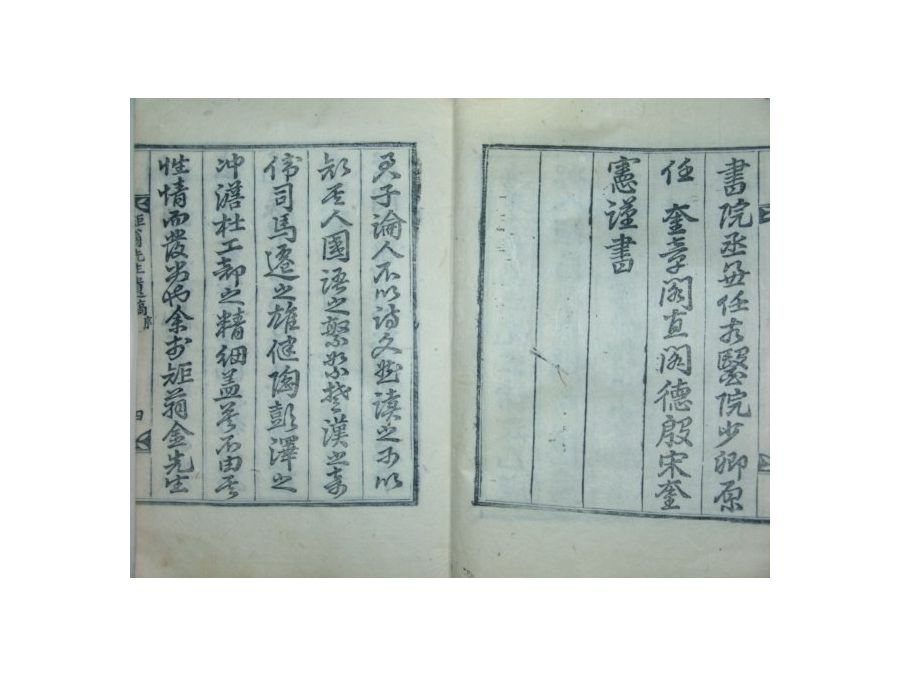 書院丞兼任太醫院少卿原
任 奎章閣直閣德殷宋奎
憲謹書
君子論人不以詩文然讀之可以
知其人國語之繁絮楚漢之奇
偉司馬遷之雄健陶彭澤之
冲澹杜工部之精細盖莫不由其
性情而發者也余於矩翁金先生
矩翁先生遺稿 序 四